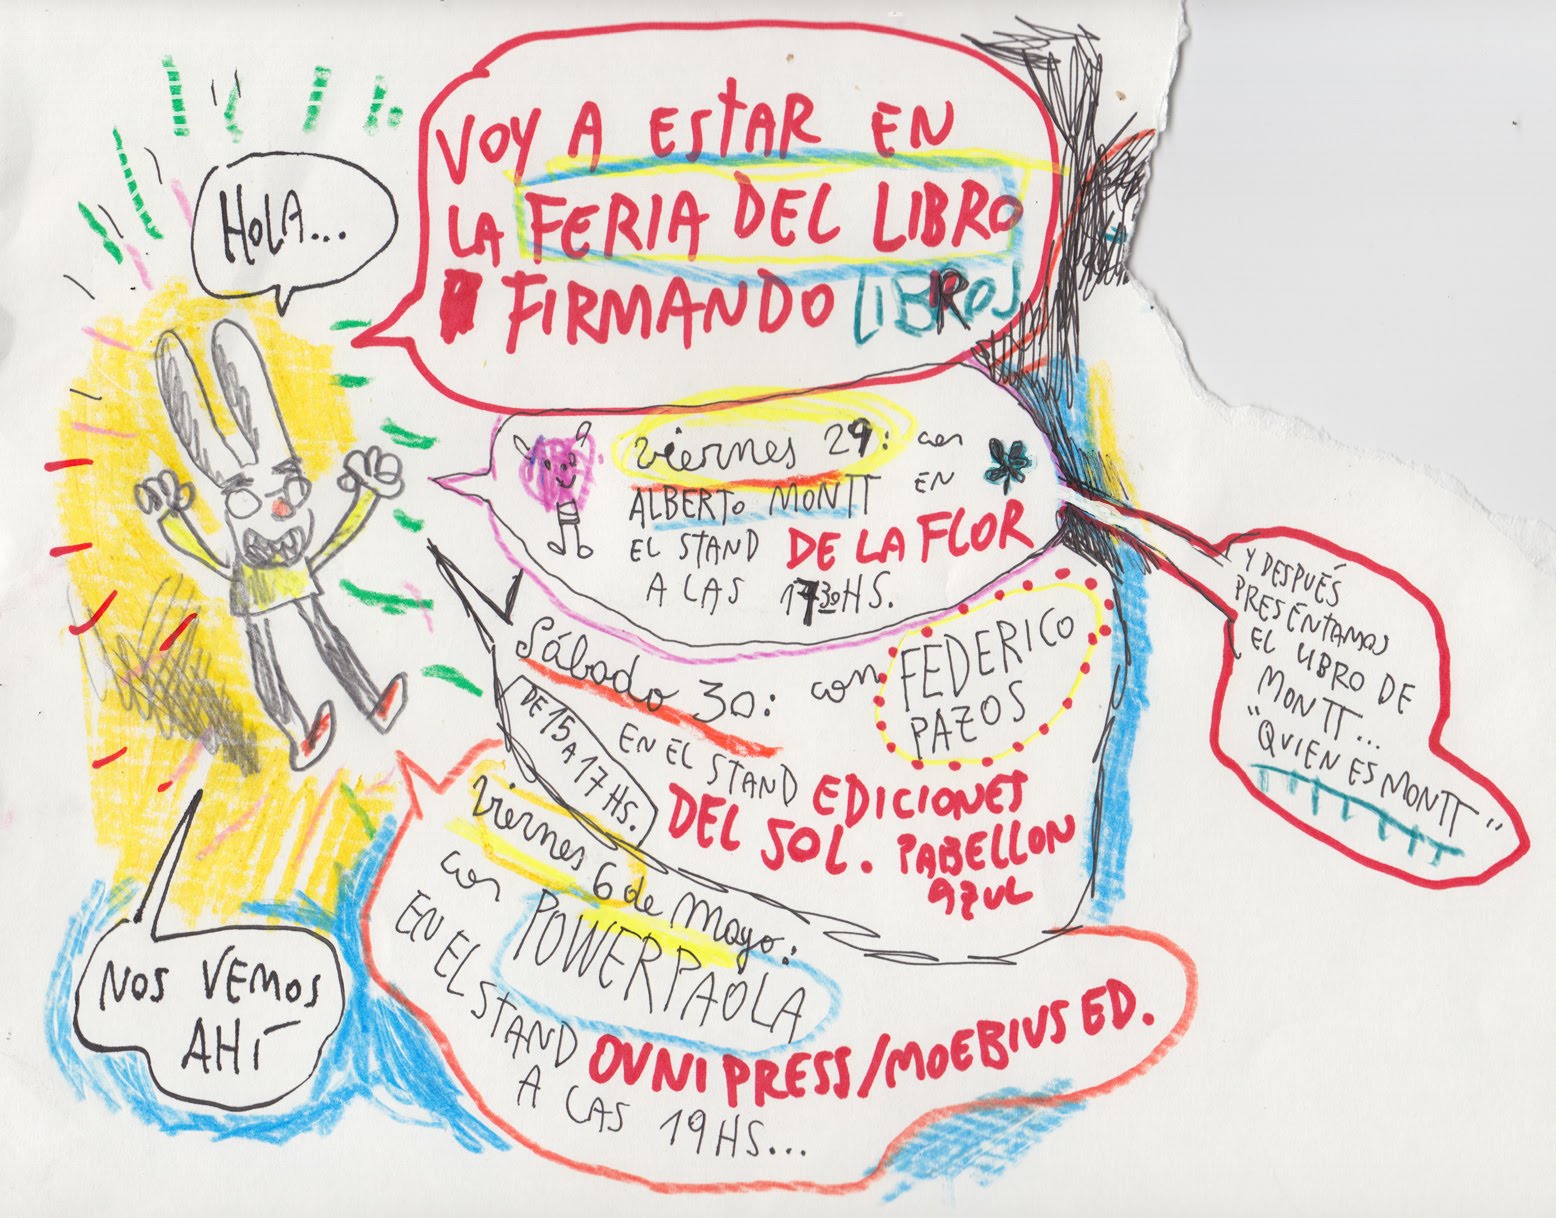 HOLA...
VOY A ESTAR EN
LA FERIA DEL LIBRO
FIRMANDO LIBROS
viernes 29: con
ALBERTO MONTT EN
EL STAND DE LA FLOR
A LAS 1730HS.
Y DESPUÉS
PRESENTAMOS
EL LIBRO DE
MONTT...
"QUIEN ES MONTT"
Sábado 30: con FEDERICO
PAZOS
DE 15
A 17 HS.
EN EL STAND EDICIONES
DEL SOL. PABELLON
AZUL
viernes 6 de Mayo:
con POWERPAOLA
EN EL STAND OVNI PRESS/MOEBIUS ED.
A LAS 19HS...
NOS VEMOS
AHÍ